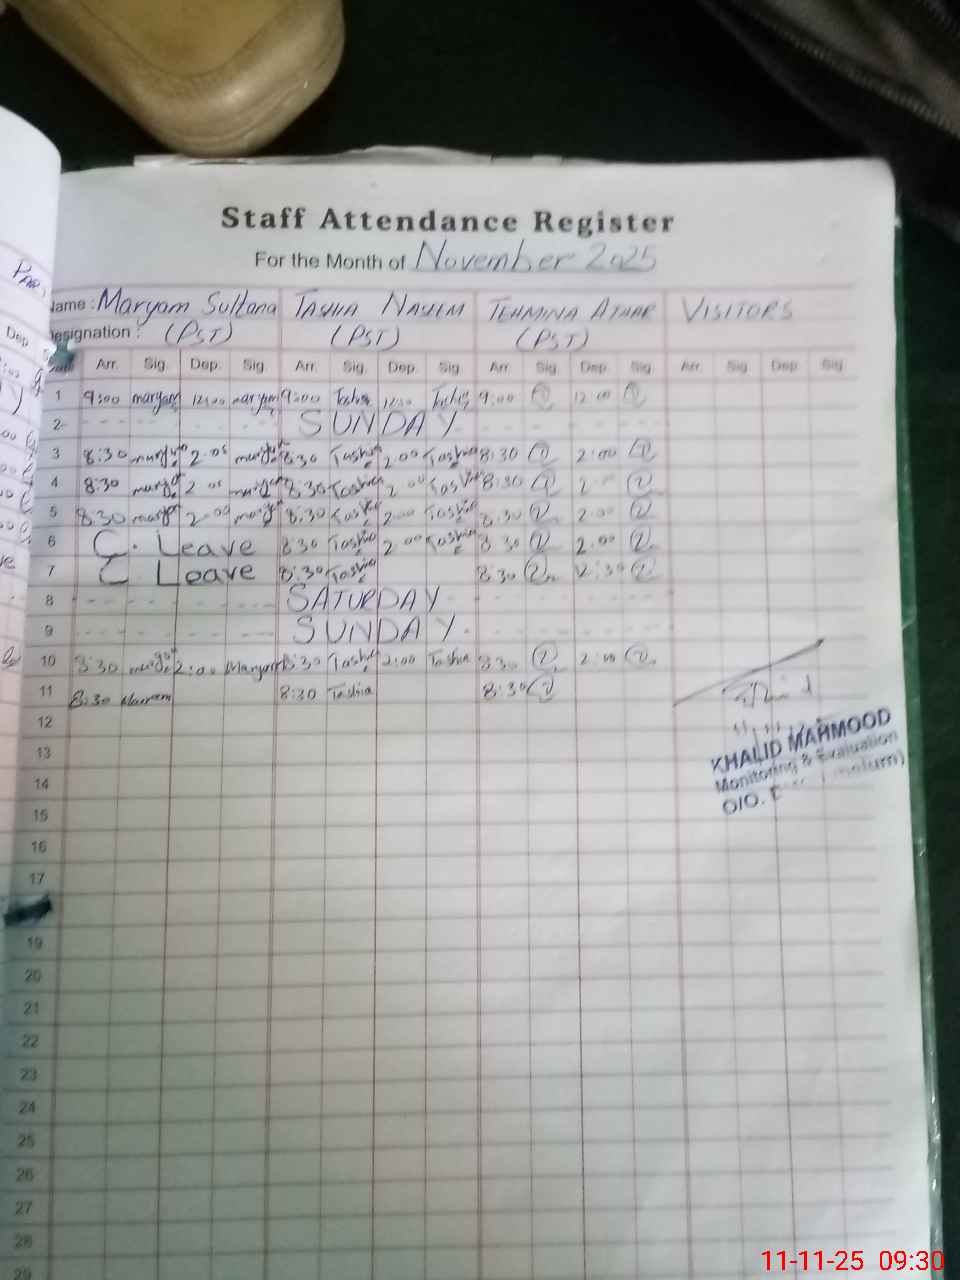 Staff Attendance Register
For the Month of November 2025
Name : Maryam Sultana TASHIA NASEEM TEHMINA ATHAR VISITORS
Designation : (PST) (PST) (PST)
Arr. Sig. Dep. Sig. Arr. Sig. Dep. Sig. Arr. Sig. Dep. Sig. Arr. Sig. Dep. Sig.
1 9:00 maryam 12:00 maryam 9:00 Tashia 12:00 Tashia 9:00 12:00
2 SUNDAY
3 8:30 2:00 8:30 Tashia 2:00 Tashia 8:30 2:00
4 8:30 2:00 8:30 Tashia 2:00 Tashia 8:30
5 8:30 2:00 8:30 Tashia 2:00 Tashia 8:30 2:00
6 C. Leave 8:30 Tashia 2:00 Tashia 8:30 2:00
7 C. Leave 8:30 Tashia 8:30 12:30
8 SATURDAY
9 SUNDAY
10 8:30 2:00 Maryam 8:30 Tashia 2:00 Tashia 8:30 2:00
11 8:30 Maryam 8:30 Tashia 8:30
12
13
KHALID MAHMOOD
Monitoring & Evaluation
14
O/O.
15
16
17
19
20
21
22
23
24
25
26
27
28
29
11-11-25 09:30